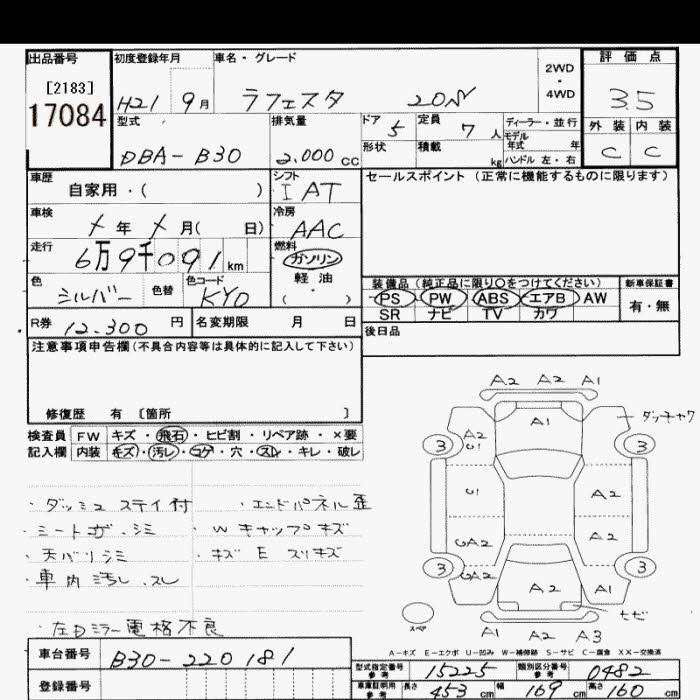 出品番号 初度登録年月 車名・グレード 2WD ・ 4WD 評価点
[2183]
17084 H21 9月 ラフェスタ 20M 3.5
型式 排気量 ドア 定員 ディーラー・並行 外装 内装
DBA-B30 2.000cc 5 7人 モデル年式 年 C C
形状 積載 kg ハンドル 左・右
車歴 自家用・( ) シフト IAT セールスポイント(正常に機能するものに限ります)
車検 メ年 メ月( 日) 冷房 AAC
走行 6万9千091km 燃料 ガソリン
軽油
( ・ )
色 シルバー 色替 色コード KY0
装備品(純正品に限り○をつけてください) 新車保証書
PS PW ABS エアB AW 有・無
SR ナビ TV カワ
R券 12.300円 名変期限 月 日 後日品
注意事項申告欄(不具合内容等は具体的に記入して下さい)
修復歴 有 〔箇所 〕
検査員 FW キズ・飛石・ヒビ割・リペア跡・×要
記入欄 内装 キズ・汚レ・コゲ・穴・スレ・キレ・破レ
・ダッシュ ステイ付 ・エンドパネル歪
・シートコゲ、シミ ・Wキャップキズ
・天バリシミ ・キズ E スリキズ
・車内汚レ、スレ
・左Dミラー電格不良
A2 A2 A1
A1 ダッチャク
3 A2 U1 3
U1 A2
UA2 A2
3 UA2 A2 A1 3
ヒビ
スペア A1 A2 A3
A-キズ E-エクボ U-凹み W-補修跡 S-サビ C-腐食 XX-交換済
車台番号 B30-220181
型式指定番号 参考 15225 類別区分番号 参考 0482
登録番号
車庫証明用 参考 長さ 453cm 幅 169cm 高さ 160cm